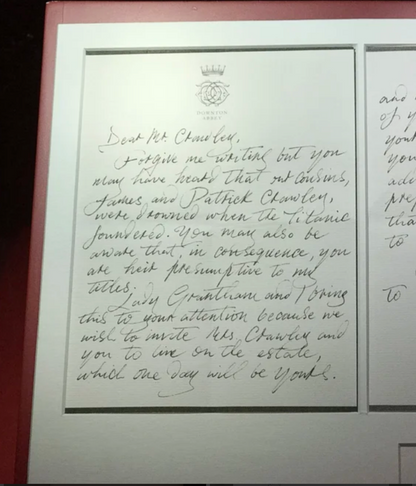 DOWNTON
ABBEY
Dear Mr. Crawley,
Forgive me writing but you
may have heard that our cousins,
James, and Patrick Crawley,
were drowned when the Titanic
foundered. You may also be
aware that, in consequence, you
are heir presumptive to my
titles. Lady Grantham and I bring
this to your attention because we
wish to invite Mrs. Crawley and
you to live on the estate,
which one day will be yours.
and
of y
you
you
adv
pre
tha
to
to